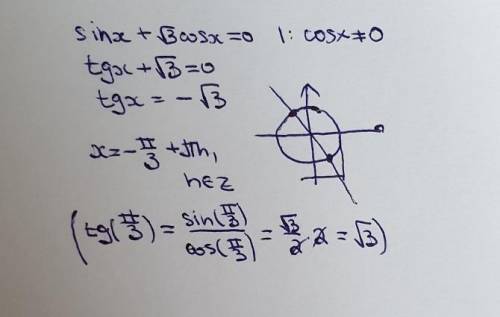 sinx + √3cosx=0 | : cosx≠0
tgx + √3 = 0
tgx = - √3
x = - π/3 + πn,
n∈Z
(tg(π/3) = sin(π/3)/cos(π/3) = √3/2 · 2 = √3)